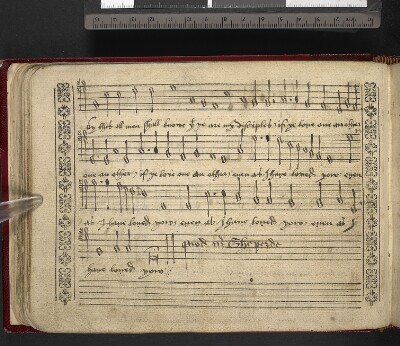 by this all men shall knowe yt ye are my disciples, if ye love one another
one an other, if ye love one an other, even as I have loved yow, even
as I have loved yow, even as I have loved yow, even as I
quod mr Sheperde
have loved yow.